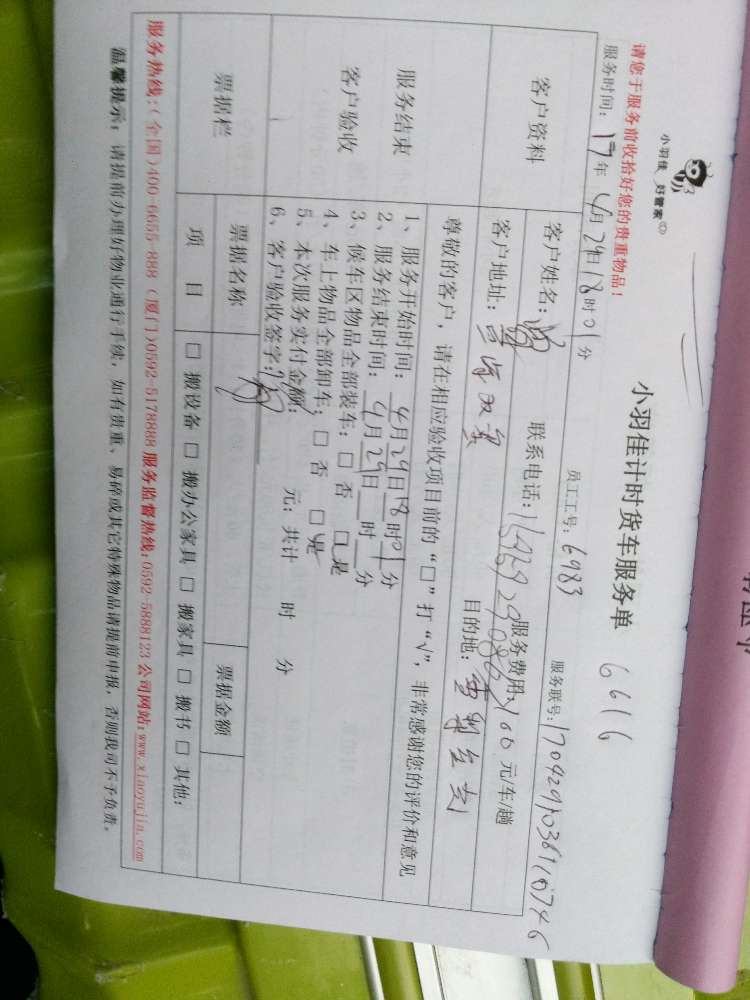 小羽佳 好管家
小羽佳计时货车服务单 6616
请您于服务前收拾好您的贵重物品！
服务时间：17年 4月29日18时01分 员工工号：6983 服务联号：
客户资料
客户姓名： 联系电话： 服务费用：100元/车/趟
客户地址： 目的地：
尊敬的客户，请在相应验收项目前的“□”打“√”，非常感谢您的评价和意见
服务结束
客户验收
1、服务开始时间：4月29日18时01分
2、服务结束时间：4月29日 时 分
3、候车区物品全部装车：□否 □是
4、车上物品全部卸车：□否 □是
5、本次服务实付金额： 元；共计 时 分
6、客户验收签字：
票据栏
票据名称 票据金额
项 目 □ 搬设备 □ 搬办公家具 □ 搬家具 □ 搬书 □ 其他：
服务热线：(全国)400-6655-888 (厦门)0592-5178888 服务监督热线：0592-5888123 公司网站：www.xiaoyujia.com
温馨提示：请提前办理好物业通行手续，如有贵重、易碎或其它特殊物品请提前申报，否则我司不予负责。